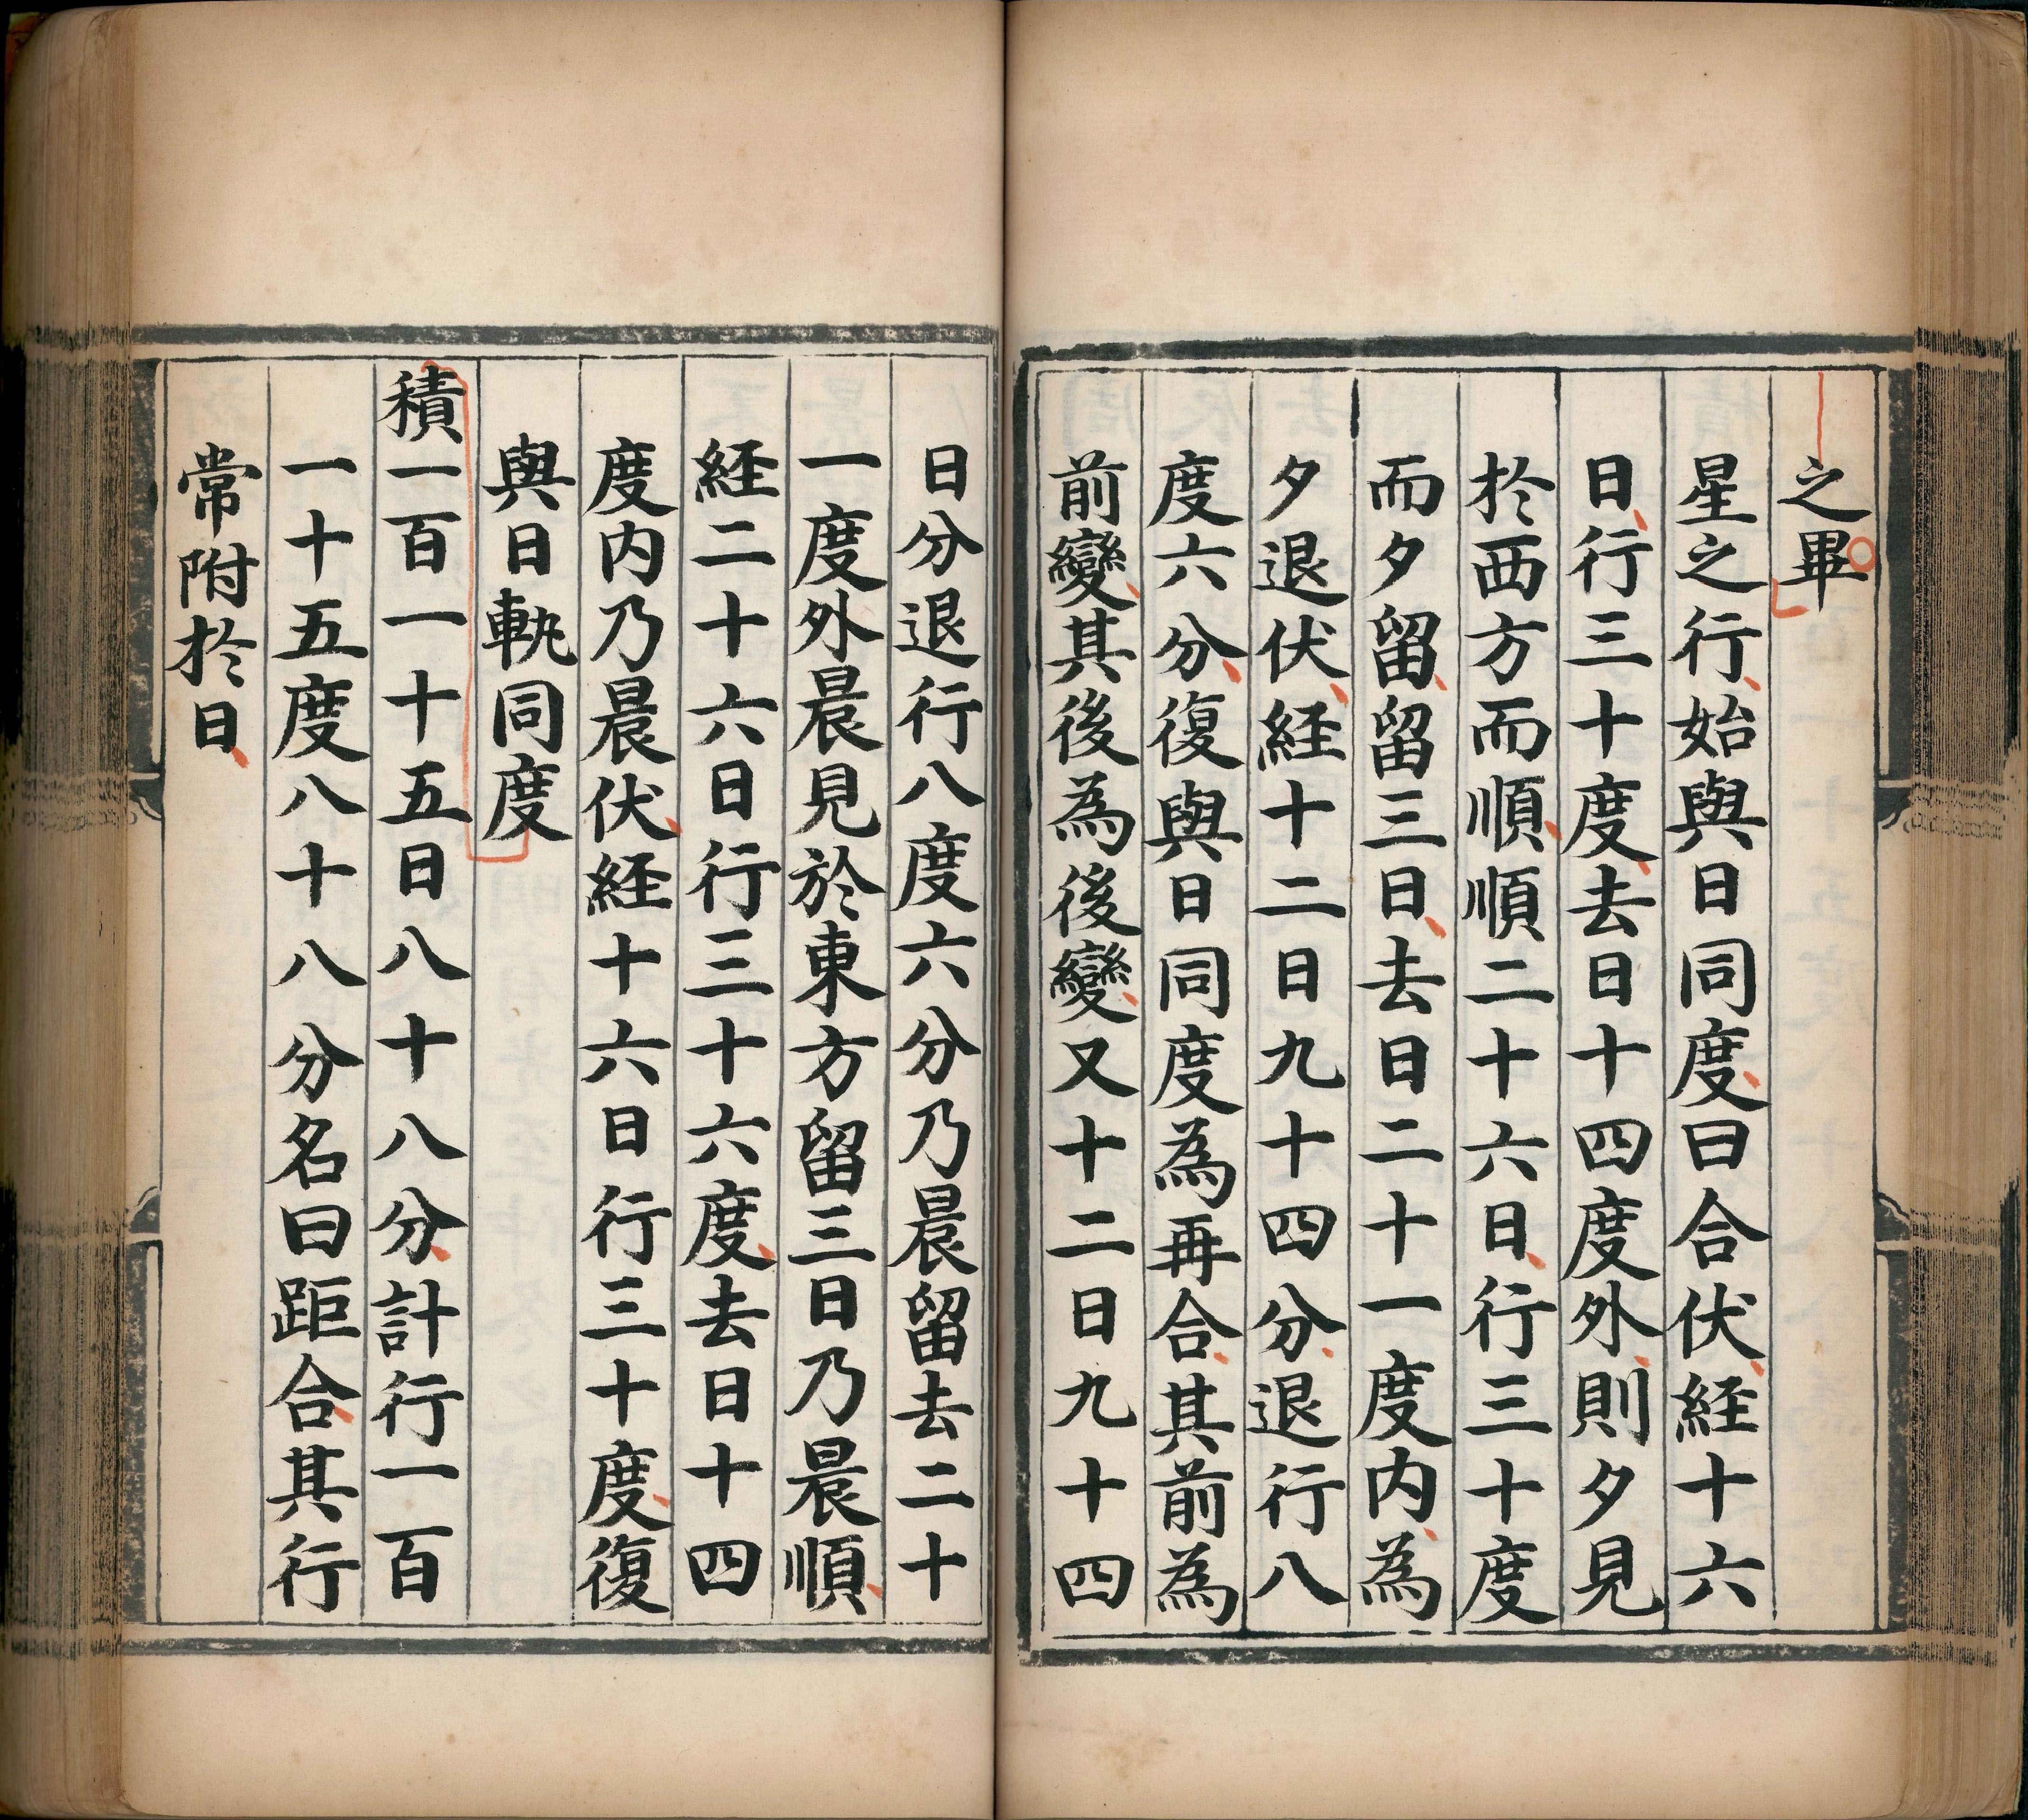 之畢
星之行始與日同度曰合伏経十六
日行三十度去日十四度外則夕見
於西方而順順二十六日行三十度
而夕留留三日去日二十一度内為
夕退伏経十二日九十四分退行八
度六分復與日同度為再合其前為
前變其後為後變又十二日九十四
日分退行八度六分乃晨留去二十
一度外晨見於東方留三日乃晨順
経二十六日行三十六度去日十四
度内乃晨伏経十六日行三十度復
與日執同度
積一百一十五日八十八分計行一百
一十五度八十八分名曰距合其行
常附於日